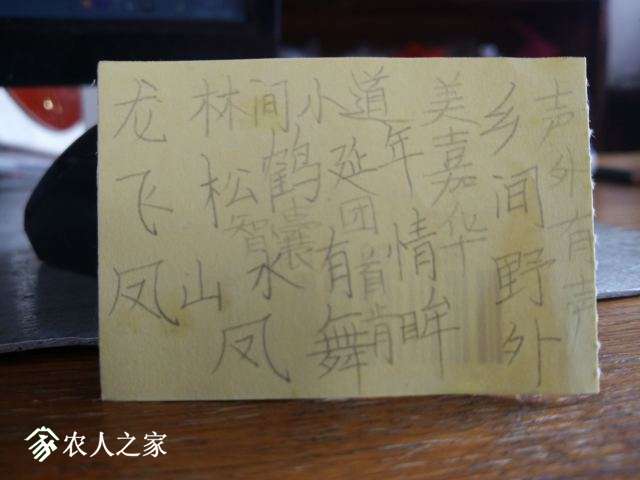 龙飞凤
林间小道
松鹤延年
智囊团
山水有情
凤舞
首肯
眸
美嘉华
乡间野外
声外有声
农人之家